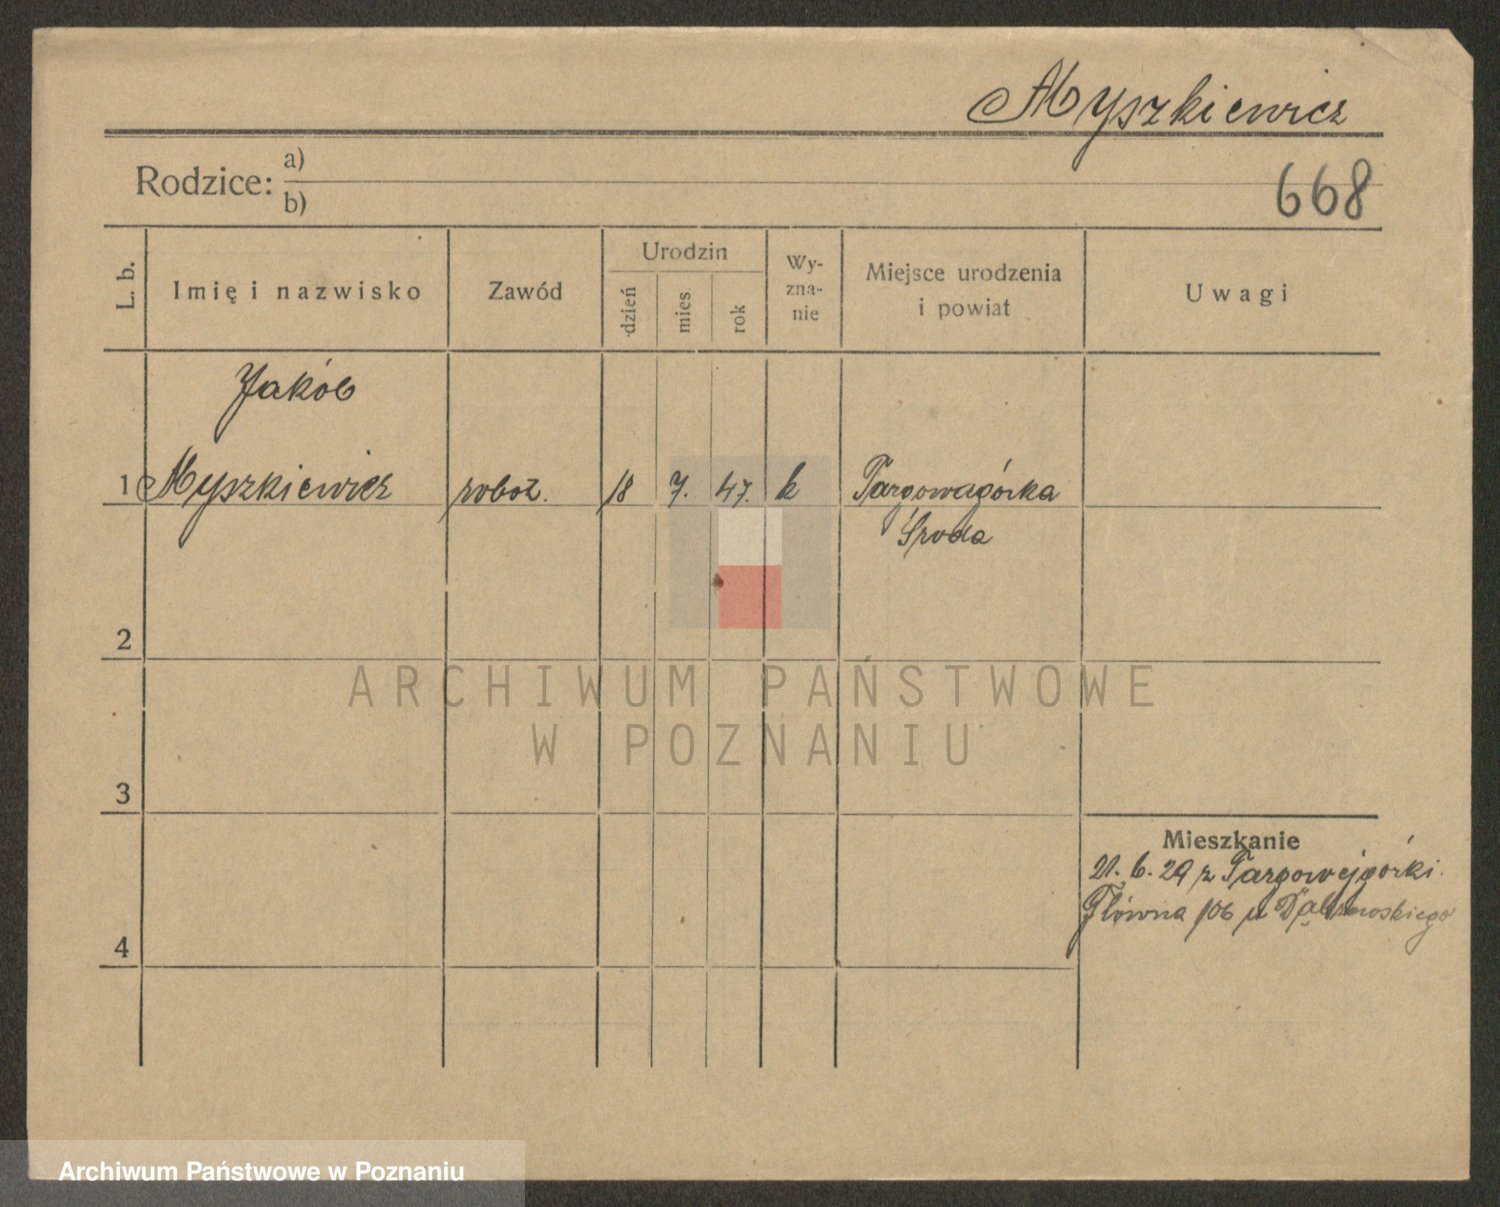 Myszkiewicz
Rodzice: a)
b)
668
L. b.
Imię i nazwisko
Zawód
Urodzin
dzień
mies
rok
Wy-
zna-
nie
Miejsce urodzenia
i powiat
Uwagi
Jakób
1 Myszkiewicz robot. 18 7. 47. k Targowagórka
Środa
2
ARCHIWUM PAŃSTWOWE
W POZNANIU
3
Mieszkanie
21. 6. 29 z Targowejgórki.
Główna 106 u Dąbrowskiego
4
Archiwum Państwowe w Poznaniu